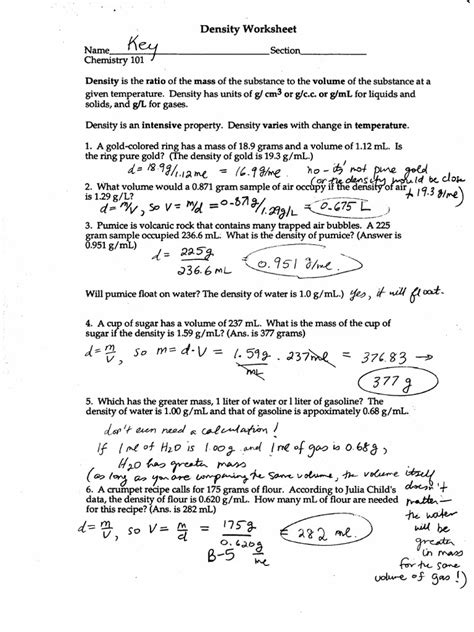 Density Worksheet
Name Key Section
Chemistry 101
Density is the ratio of the mass of the substance to the volume of the substance at a
given temperature. Density has units of g/ cm³ or g/c.c. or g/mL for liquids and
solids, and g/L for gases.
Density is an intensive property. Density varies with change in temperature.
1. A gold-colored ring has a mass of 18.9 grams and a volume of 1.12 mL. Is
the ring pure gold? (The density of gold is 19.3 g/mL.)
d = 18.9g/1.12 me = 16.9g/me no - it's not pure gold
(or the density would be close
to 19.3 g/me)
2. What volume would a 0.871 gram sample of air occupy if the density of air
is 1.29 g/L?
d = m/V, so V = m/d = 0.871g/1.29g/L = 0.675 L
3. Pumice is volcanic rock that contains many trapped air bubbles. A 225
gram sample occupied 236.6 mL. What is the density of pumice? (Answer is
0.951 g/mL)
d = 225g
236.6 mL = 0.951 g/me.
Will pumice float on water? The density of water is 1.0 g/mL.) Yes, it will float.
4. A cup of sugar has a volume of 237 mL. What is the mass of the cup of
sugar if the density is 1.59 g/mL? (Ans. is 377 grams)
d = m/V, so m = d·V = 1.59g/mL · 237me = 376.83 →
377 g
5. Which has the greater mass, 1 liter of water or l liter of gasoline? The
density of water is 1.00 g/mL and that of gasoline is appoximately 0.68 g/mL.
don't even need a calculation!
If 1 me of H2O is 1.00g and 1 me of gas is 0.68g,
H2O has greater mass
(as long as you are comparing the same volume, the volume itself
doesn't
matter—
the water
will be
greater
in mass
for the same
volume of gas!)
6. A crumpet recipe calls for 175 grams of flour. According to Julia Child's
data, the density of flour is 0.620 g/mL. How many mL of flour are needed
for this recipe? (Ans. is 282 mL)
d = m/V, so V = m/d = 175g
0.620g/me = 282 me.
B-5